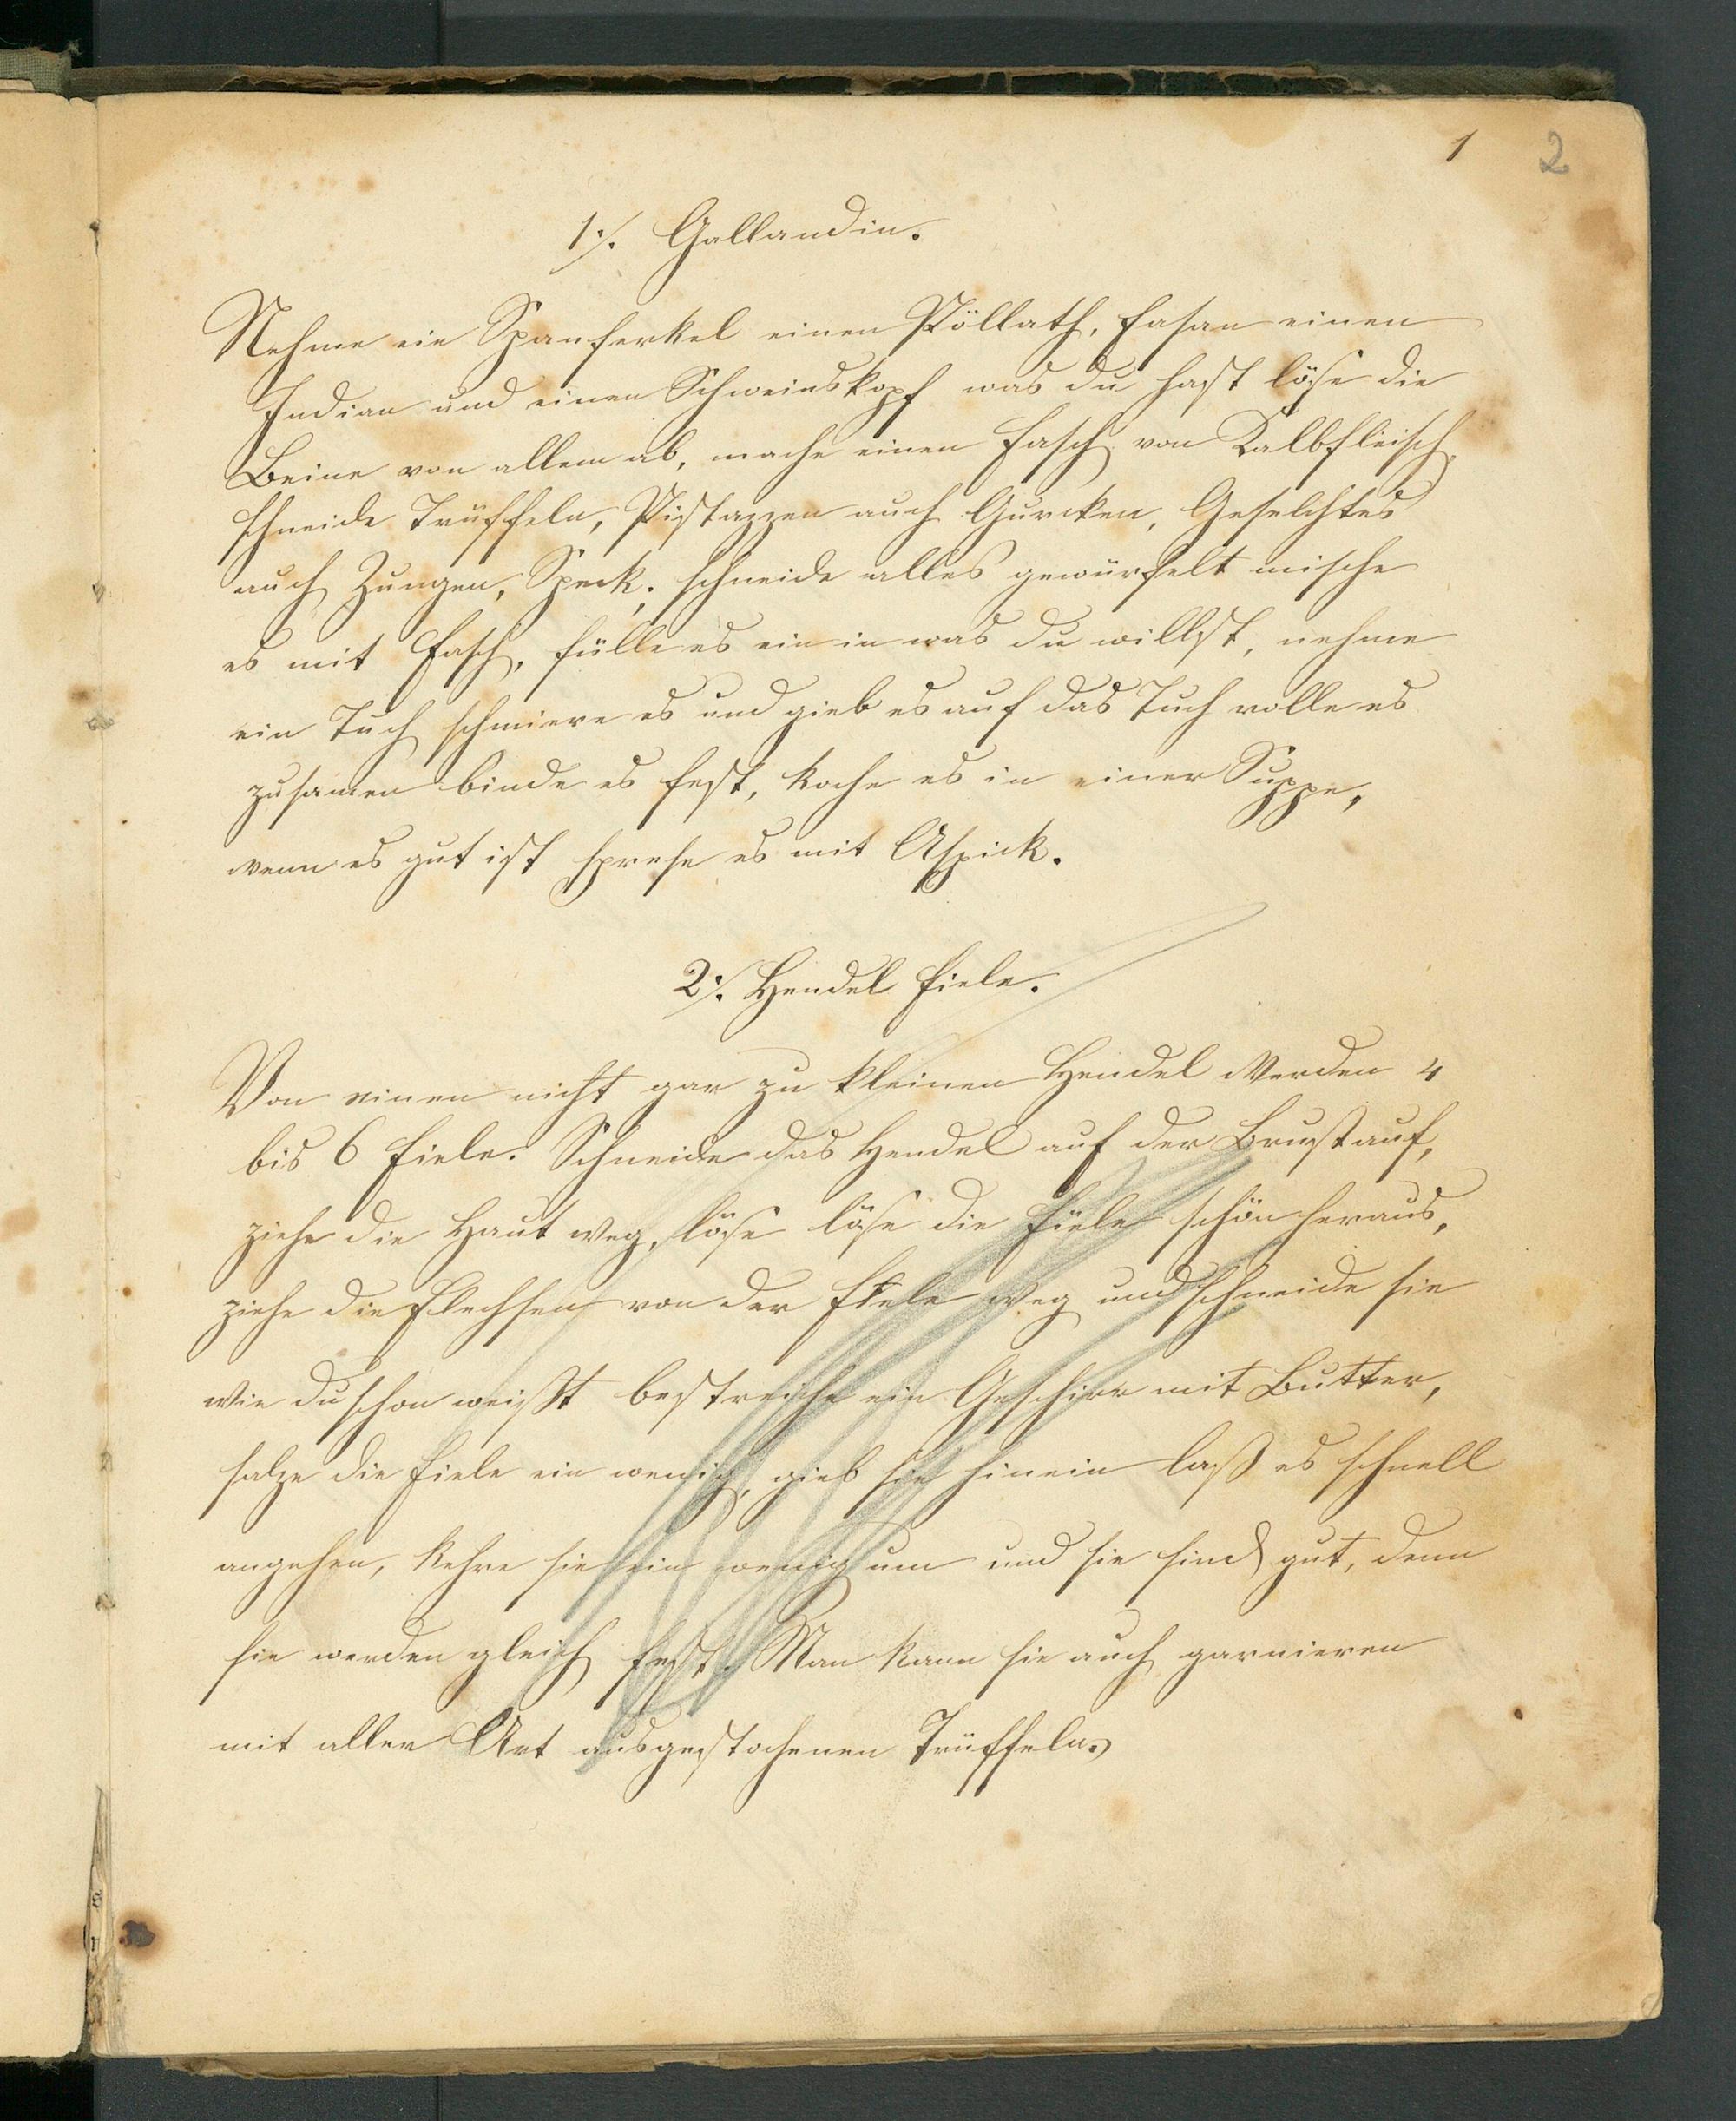 1 2
1./. Gallandin.
Nehme ein Spanferkel einen Pöllath, Fasan einen
Indian und einen Schweinskopf was du hast löse die
Beine von allem ab, mache einen Fasch von Kalbfleisch,
schneide Trüffeln, Pistazzen auch Gurcken, Geselchtes
auch Zungen, Speck, schneide alles gewürfelt mische
es mit Fasch, fülle es ein in was du willst, nehme
ein Tuch schmiere es und gieb es auf das Tuch rolle es
zusamen binde es fest, koche es in einer Suppe,
wenn es gut ist es mit Aspick.
2./. Hendel Fiele.
Von einen nicht gar zu kleinen Hendel werden 4
bis 6 Fiele. Schneide das Hendel auf der Brust auf,
ziehe die Haut weg, löse löse die Fiele schön heraus,
ziehe die Flechsen von der Fiele weg und schneide sie
wie du schon weißt bestreiche ein Geschirr mit Butter,
salze die Fiele ein wenig, gieb sie hinein laß es schnell
angehen, kehre sie ein wenig um und sie sind gut, denn
sie werden gleich fest. Man kann sie auch garnieren
mit aller Art ausgestochenen Trüffeln.